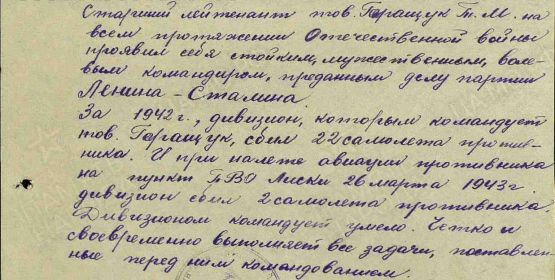 Старший лейтенант тов. Геращук Т. М. на
всем протяжении Отечественной войны
проявил себя стойким, мужественным, воле-
вым командиром, преданным делу партии
Ленина - Сталина.
За 1942 г., дивизион, которым командует
тов. Геращук, сбил 22 самолета против-
ника. И при налете авиации противника
на пункт ПВО Лиски 26 марта 1943 г.
дивизион сбил 2 самолета противника
Дивизионом командует умело. Четко и
своевременно выполняет все задачи, поставлен
ные перед ним командованием.